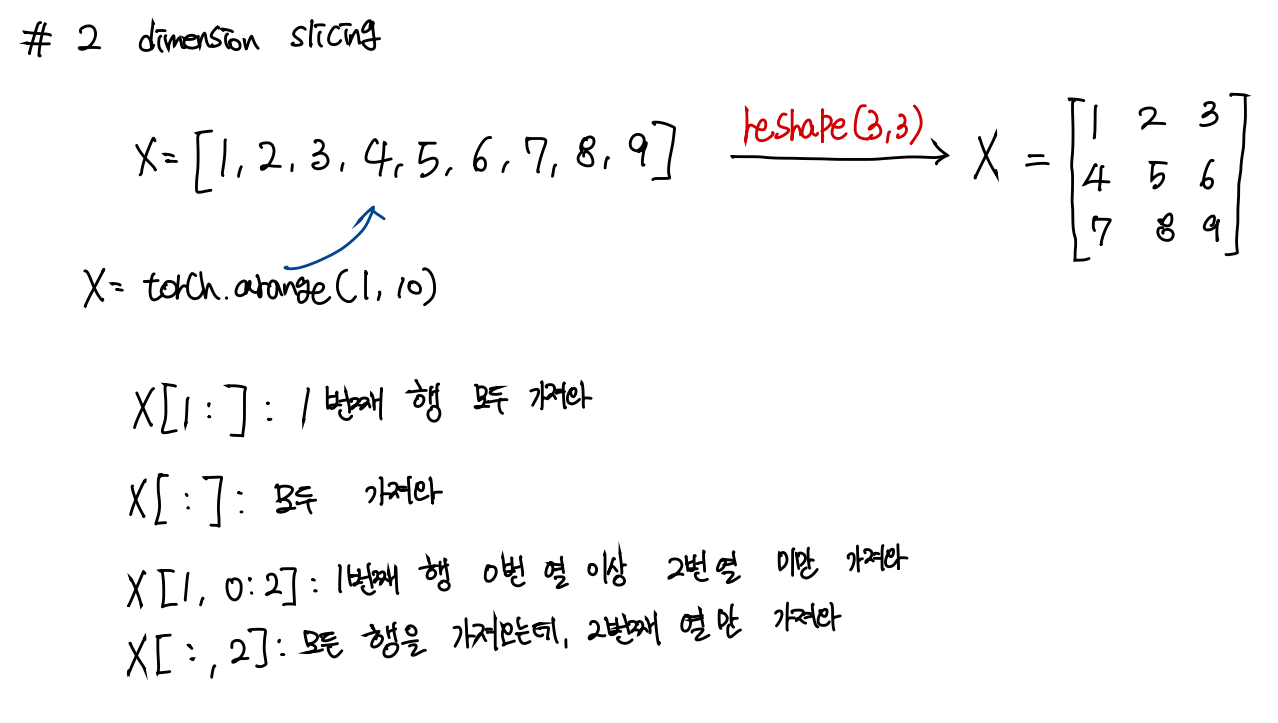 # 2 dimension slicing
X = [1, 2, 3, 4, 5, 6, 7, 8, 9]
reshape(3,3)
X = [1 2 3
4 5 6
7 8 9]
X = torch.arange(1, 10)
X[1:] : 1번째 행 모두 가져라
X[:] : 모두 가져라
X[1, 0:2] : 1번째 행 0번 열 이상 2번 열 미만 가져라
X[:, 2] : 모든 행을 가져오는데, 2번째 열만 가져라